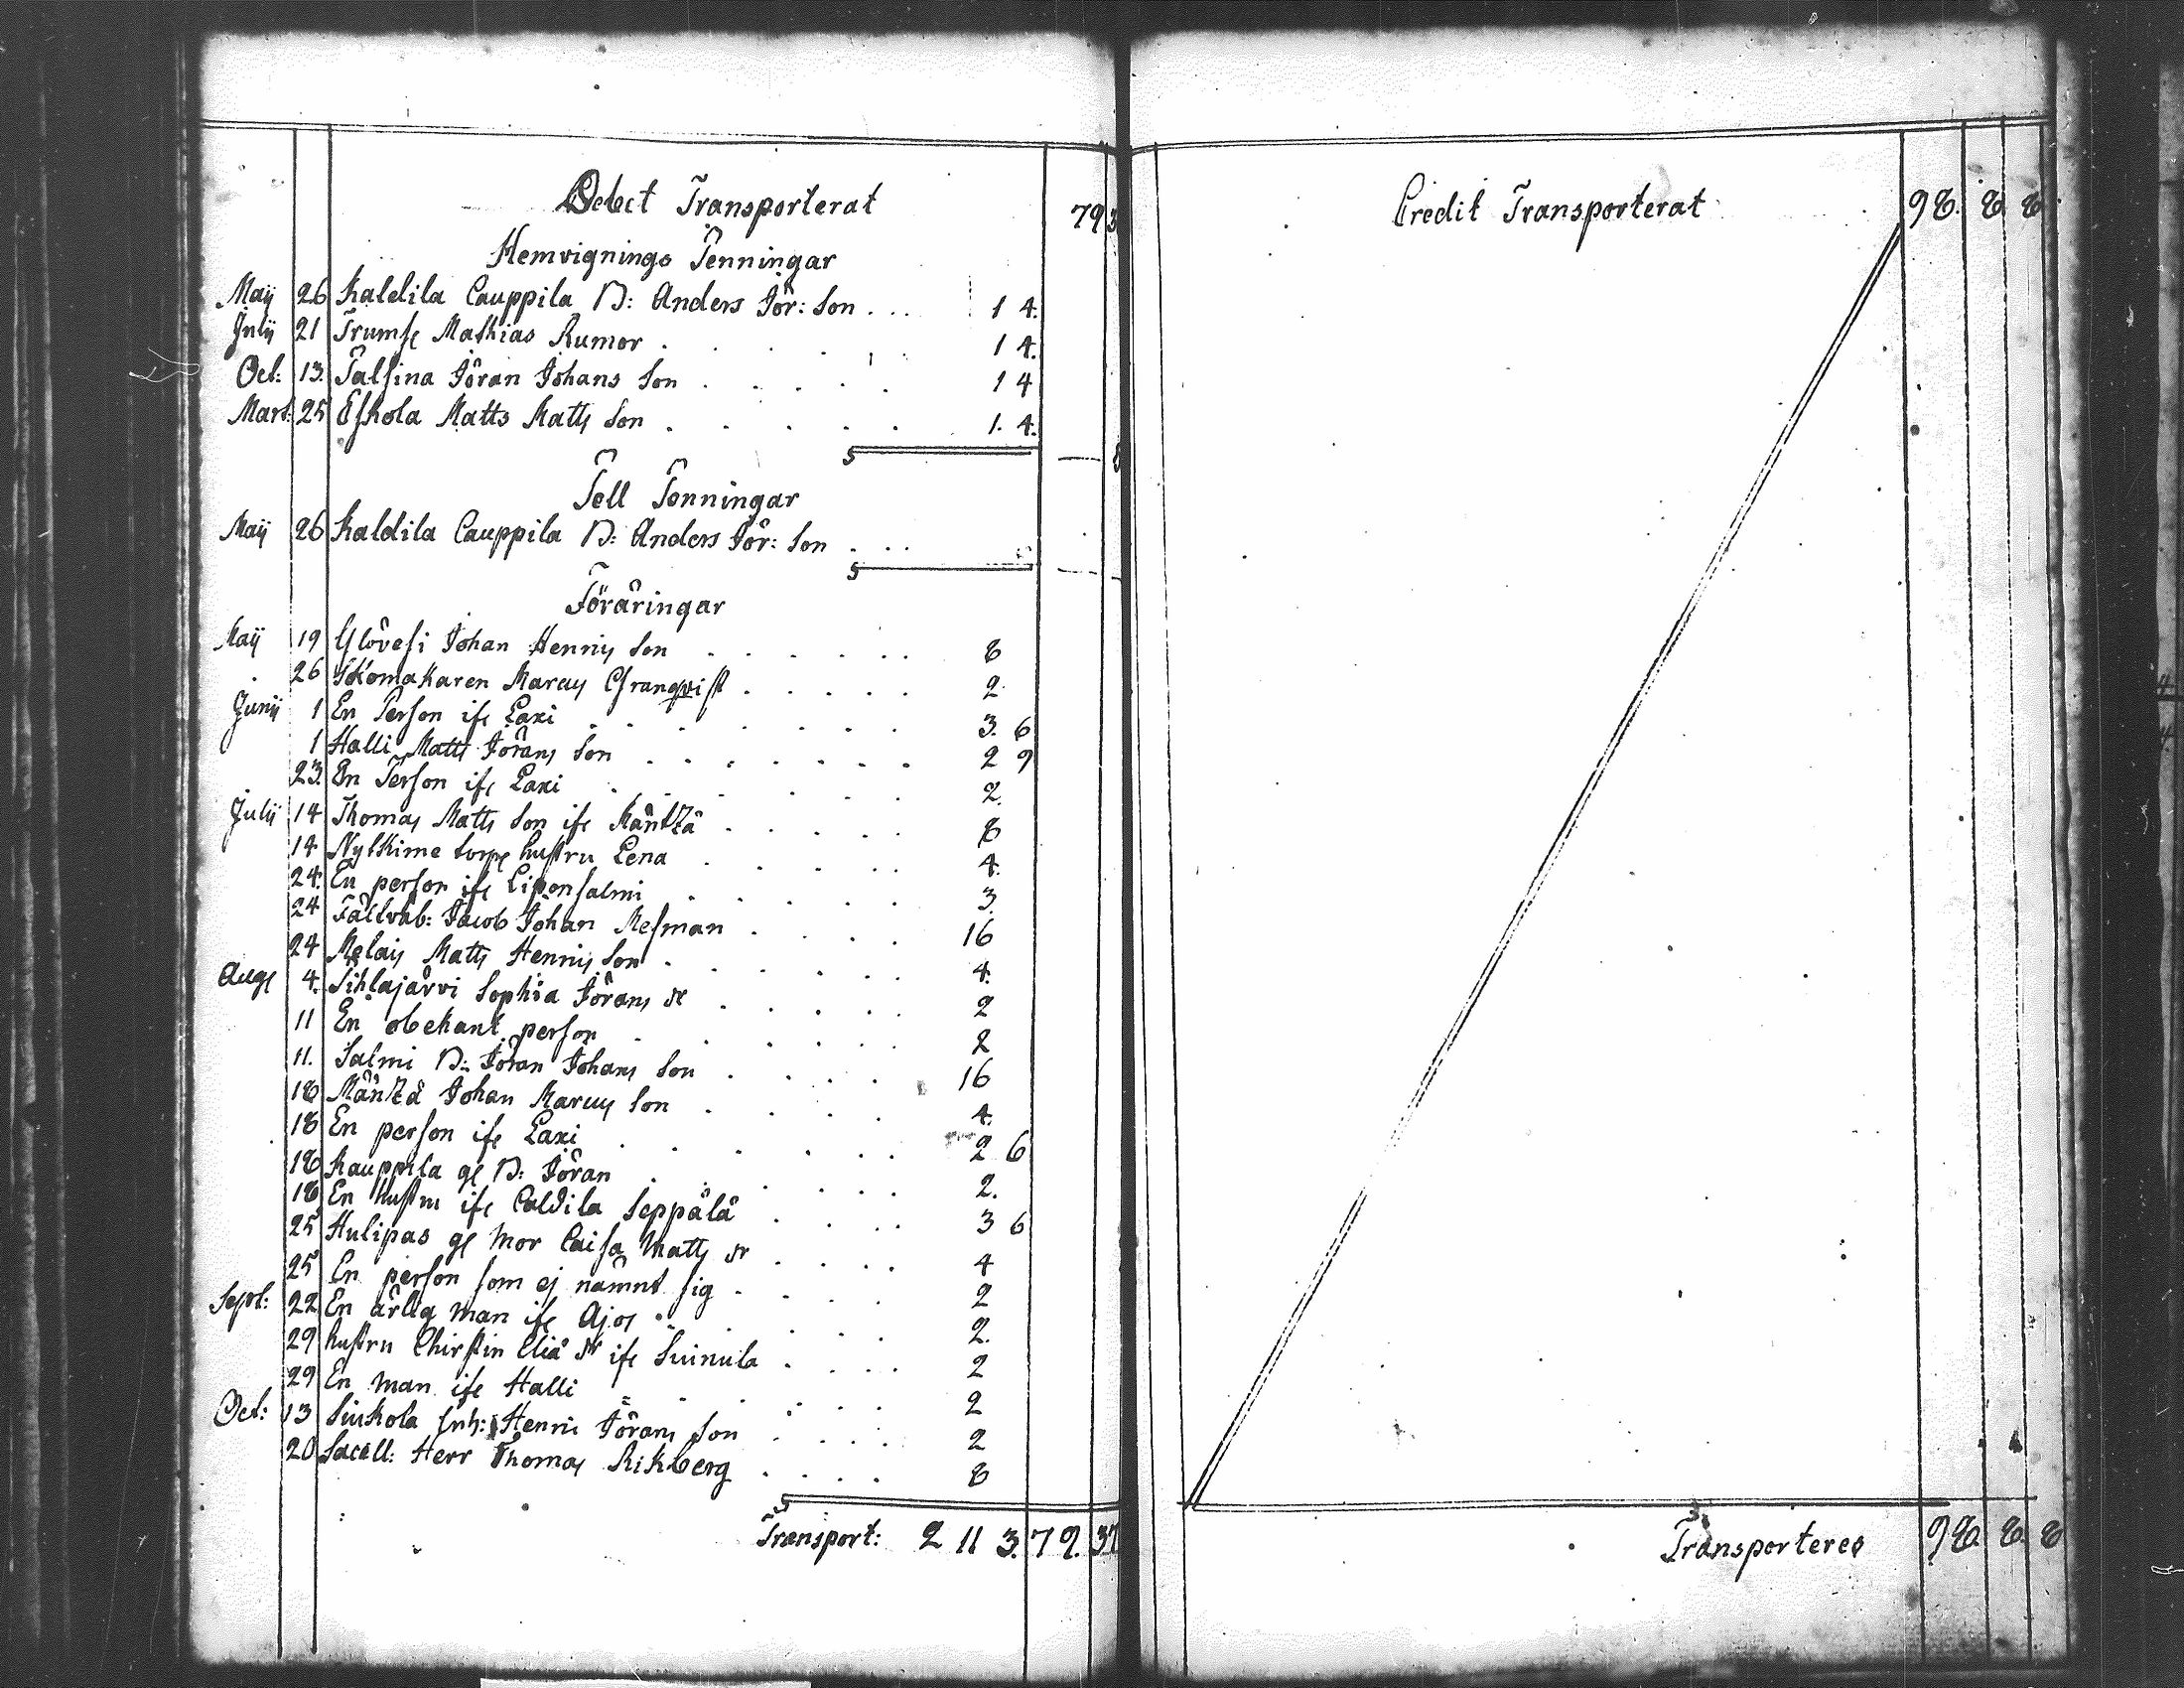 Debet Transporterat 79 3
Hemvignings Penningar
Maij 26 Kaldila Cauppila D: Anders Jör: Son . . . 1 4.
Julij 21 Trumsl Mathias Rumor . . . . . 1 4.
Oct: 13. Talsina Jöran Johans Son . . . . 1 4
Mart: 25 Eskola Matts Matts Son . . . . . 1. 4.
S
Pell Penningar
Maij 26 Kaldila Cauppila D: Anders Jör: Son . . .
S
Föräringar
Maij 19 Ylövesi Johan Henrics Son . . . . . 8
26 Skomakaren Marcus Granqvist . . . . 2
Junij 1 En Person ifr Laxi . . . . . . 3. 6
1 Halli Matts Jörans Son . . . . . . 2 9
23. En Person ifr Laxi . . . . . 2.
Julij 14 Thomas Matts Son ifr Mäntzä . . . . 8
14 hustru Lena . . . . 4.
24. En person ifr Liponsalmi . . . . . 3.
24 Fältväb: Jacob Johan Mesman . . . . 16
24 Melais Matts Henrics Son . . . . . 4.
Aug 4. Sihlajärvi Sophia Jörans dr . . . . 2
11 En obekant person . . . . . 2
11. Salmi D: Jöran Johans Son . . . . 16
18 Mäntzä Johan Marcus Son . . . . 4.
18 En person ifr Laxi . . . . . . 2 6
18 Kauppila gl D: Jöran . . . . . 2.
18 En hustru ifr Caldila Seppälä . . . 3 6
25 Hulipas gl Mor Caisa Matts dr . . . 4
25 En person som ej nämnt sig . . . . 2
Sept: 22 En ärlig man ifr Ajos . . . . . 2.
29 hustru Christin Eliä dr ifr Suinula . . . 2
29 En man ifr Halli . . . . . 2
Oct: 13 Siukola Inh: Henric Jörans Son . . . . 2
20 Sacell: Herr Thomas Rikberg . . . . 8
S
Transport: 2 11 3. 79. 37
Credit Transporterat 98. 8 8
Transporteres 98. 8. 8